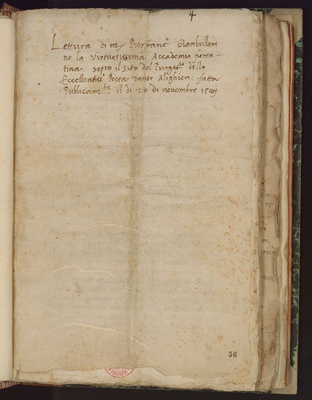 4
Lettura di m. Pierfranc.º Gianbullari
ne la Virtuosissima Accademia fioren-
tina, sopra il sito del Purgat.º dello
Eccellentiss.º Poeta Dante Alighieri, fatta
Publicam.te il di 20 di novembre
36